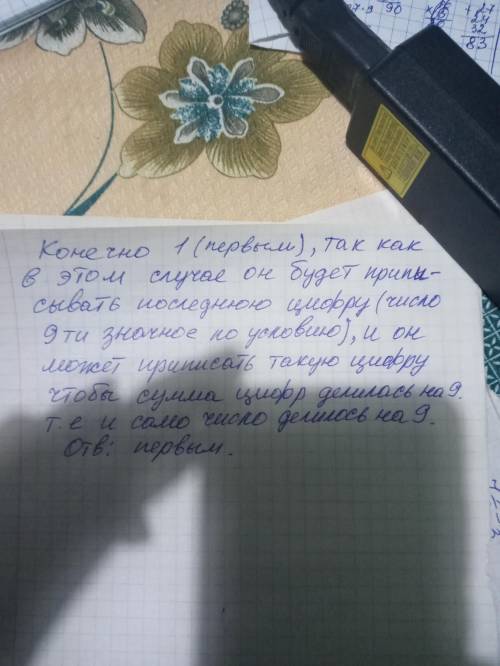 Конечно 1 (первым), так как
в этом случае он будет припи-
сывать последнюю цифру (число
9ти значное по условию), и он
может приписать такую цифру
чтобы сумма цифр делилась на 9.
т.е и само число делилось на 9.
Отв: первым.
90
27
24
32
83